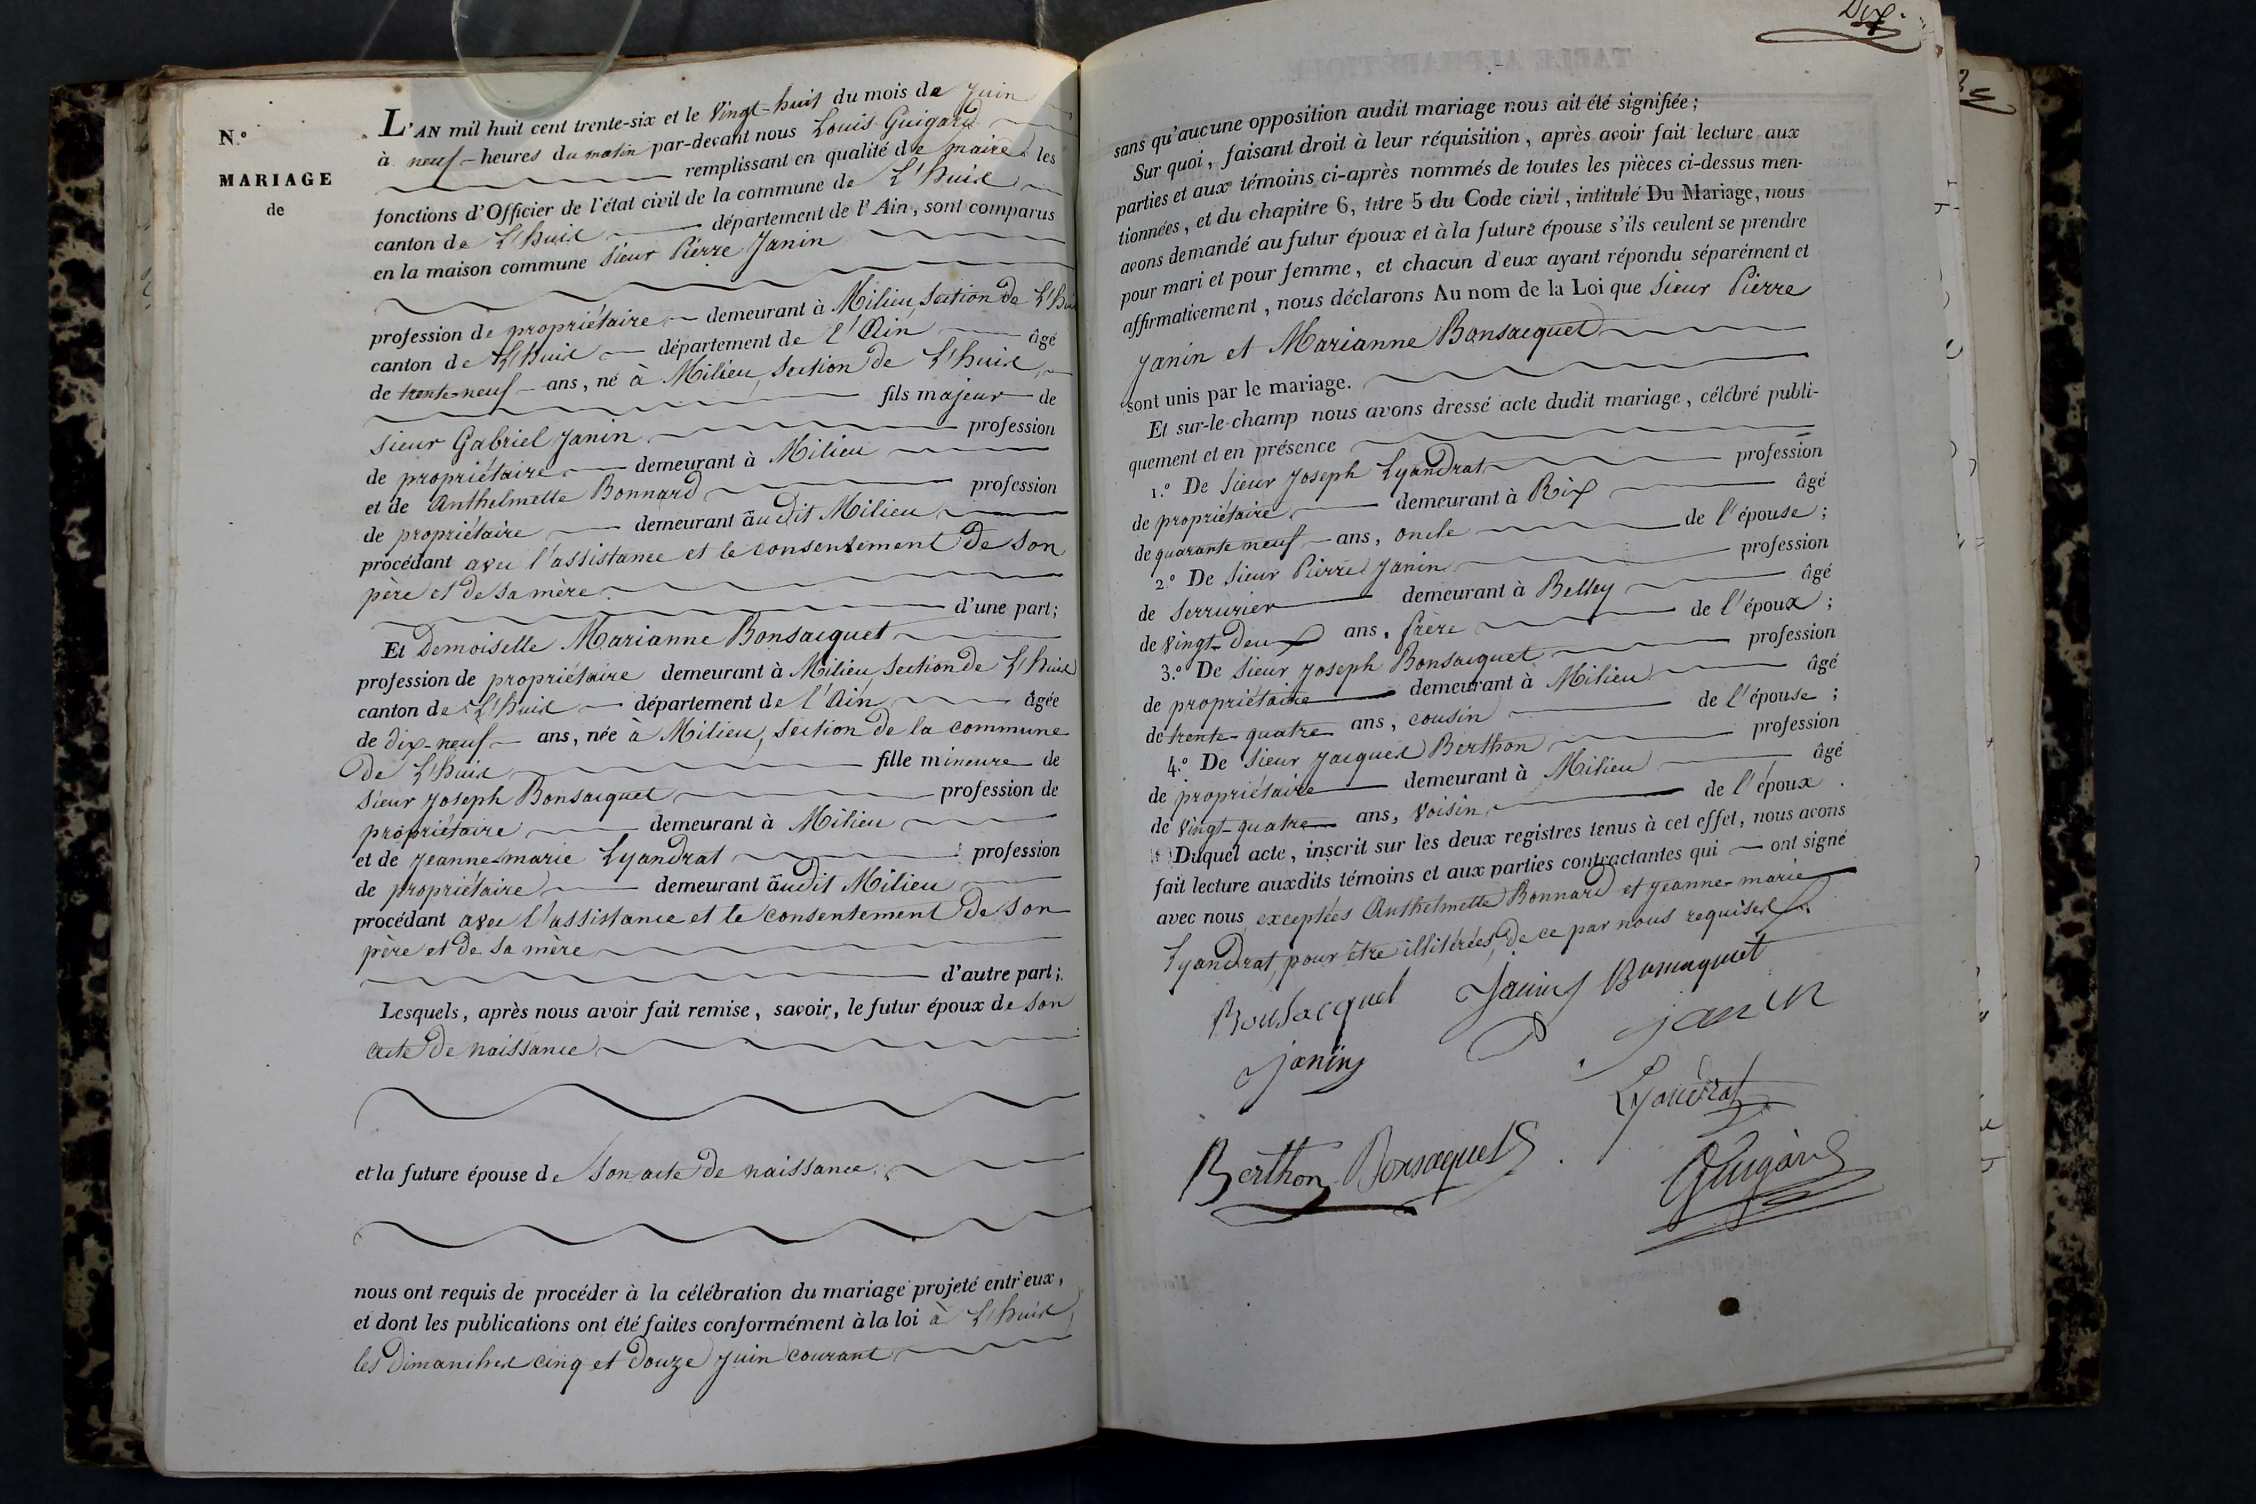 N.°
MARIAGE
de
L'AN mil huit cent trente-six et le Vingt-huit du mois de Juin
à neuf heures du matin par-devant nous Louis Guigard
remplissant en qualité de maire les
fonctions d'Officier de l'état civil de la commune de L'huis
canton de L'huis département de l'Ain, sont comparus
en la maison commune Sieur Pierre Janin
profession de propriétaire demeurant à Milieu, Section de L'huis
canton de L'huis département de l'Ain âgé
de trente-neuf ans, né à Milieu, Section de L'huis
fils majeur de
Sieur Gabriel Janin profession
de propriétaire demeurant à Milieu
et de Anthelmette Bonnard profession
de propriétaire demeurant audit Milieu
procédant avec l'assistance et le consentement de son
père et de sa mère.
d'une part;
Et Demoiselle Marianne Bonsacquet
profession de propriétaire demeurant à Milieu, Section de L'huis
canton de L'huis département de l'Ain âgée
de dix-neuf ans, née à Milieu, Section de la commune
de L'huis fille mineure de
Sieur Joseph Bonsacquet profession de
propriétaire demeurant à Milieu
et de Jeanne-marie Lyandrat profession
de propriétaire demeurant audit Milieu
procédant avec l'assistance et le consentement de son
père et de sa mère
d'autre part;
Lesquels, après nous avoir fait remise, savoir, le futur époux de son
acte de naissance
et la future épouse de son acte de naissance
nous ont requis de procéder à la célébration du mariage projeté entr'eux,
et dont les publications ont été faites conformément à la loi à L'huis
les dimanches cinq et douze juin courant
Dix.
sans qu'aucune opposition audit mariage nous ait été signifiée;
Sur quoi, faisant droit à leur réquisition, après avoir fait lecture aux
parties et aux témoins ci-après nommés de toutes les pièces ci-dessus men-
tionnées, et du chapitre 6, titre 5 du Code civil, intitulé Du Mariage, nous
avons demandé au futur époux et à la future épouse s'ils veulent se prendre
pour mari et pour femme, et chacun d'eux ayant répondu séparément et
affirmativement, nous déclarons Au nom de la Loi que Sieur Pierre
Janin et Marianne Bonsacquet
sont unis par le mariage.
Et sur-le-champ nous avons dressé acte dudit mariage, célébré publi-
quement et en présence
1.° De Sieur Joseph Lyandrat profession
de propriétaire demeurant à Rix âgé
de quarante neuf ans, oncle de l'épouse;
2.° De Sieur Pierre Janin profession
de Serrurier demeurant à Belley âgé
de Vingt-Deux ans, frère de l'époux;
3.° De Sieur Joseph Bonsacquet profession
de propriétaire demeurant à Milieu âgé
de trente-quatre ans, cousin de l'épouse;
4.° De Sieur Jacques Berthon profession
de propriétaire demeurant à Milieu âgé
de Vingt-quatre ans, Voisin de l'époux.
Duquel acte, inscrit sur les deux registres tenus à cet effet, nous avons
fait lecture auxdits témoins et aux parties contractantes qui ont signé
avec nous exceptées Anthelmette Bonnard et Jeanne-marie
Lyandrat, pour être illitérées, de ce par nous requises.
Bonsacquet Janin Bonsaquet
janin
Janin
Lyandrat
Berthon Bonsaquet
Guigard